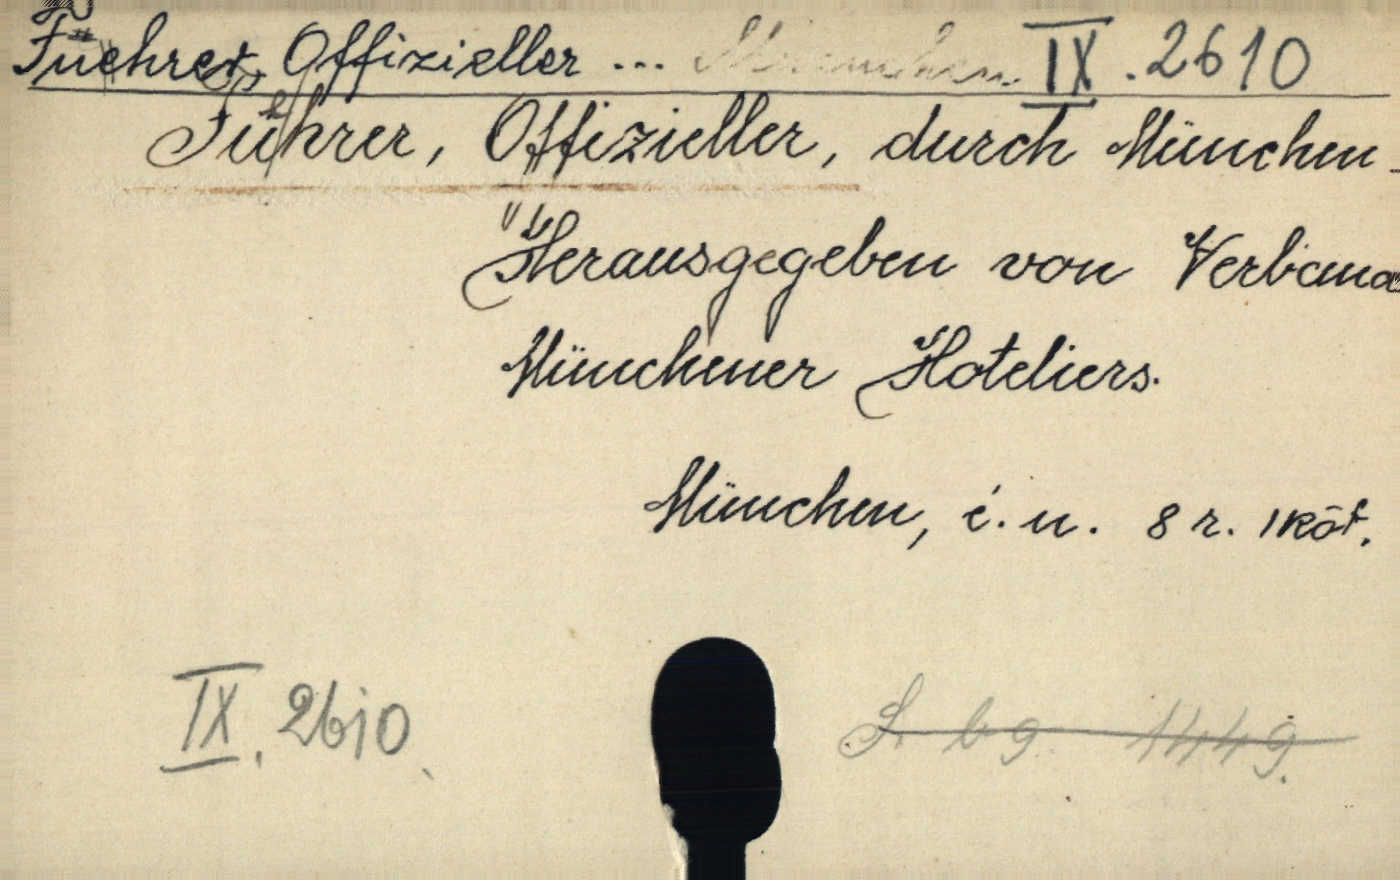 Fuehrer, Offizieller ... Muenchen IX. 2610
Führer, Offizieller, durch München.
Herausgegeben von Verband
Münchener Hoteliers.
München, é. n. 8 r. 1 köt.
IX. 2610.
1449.